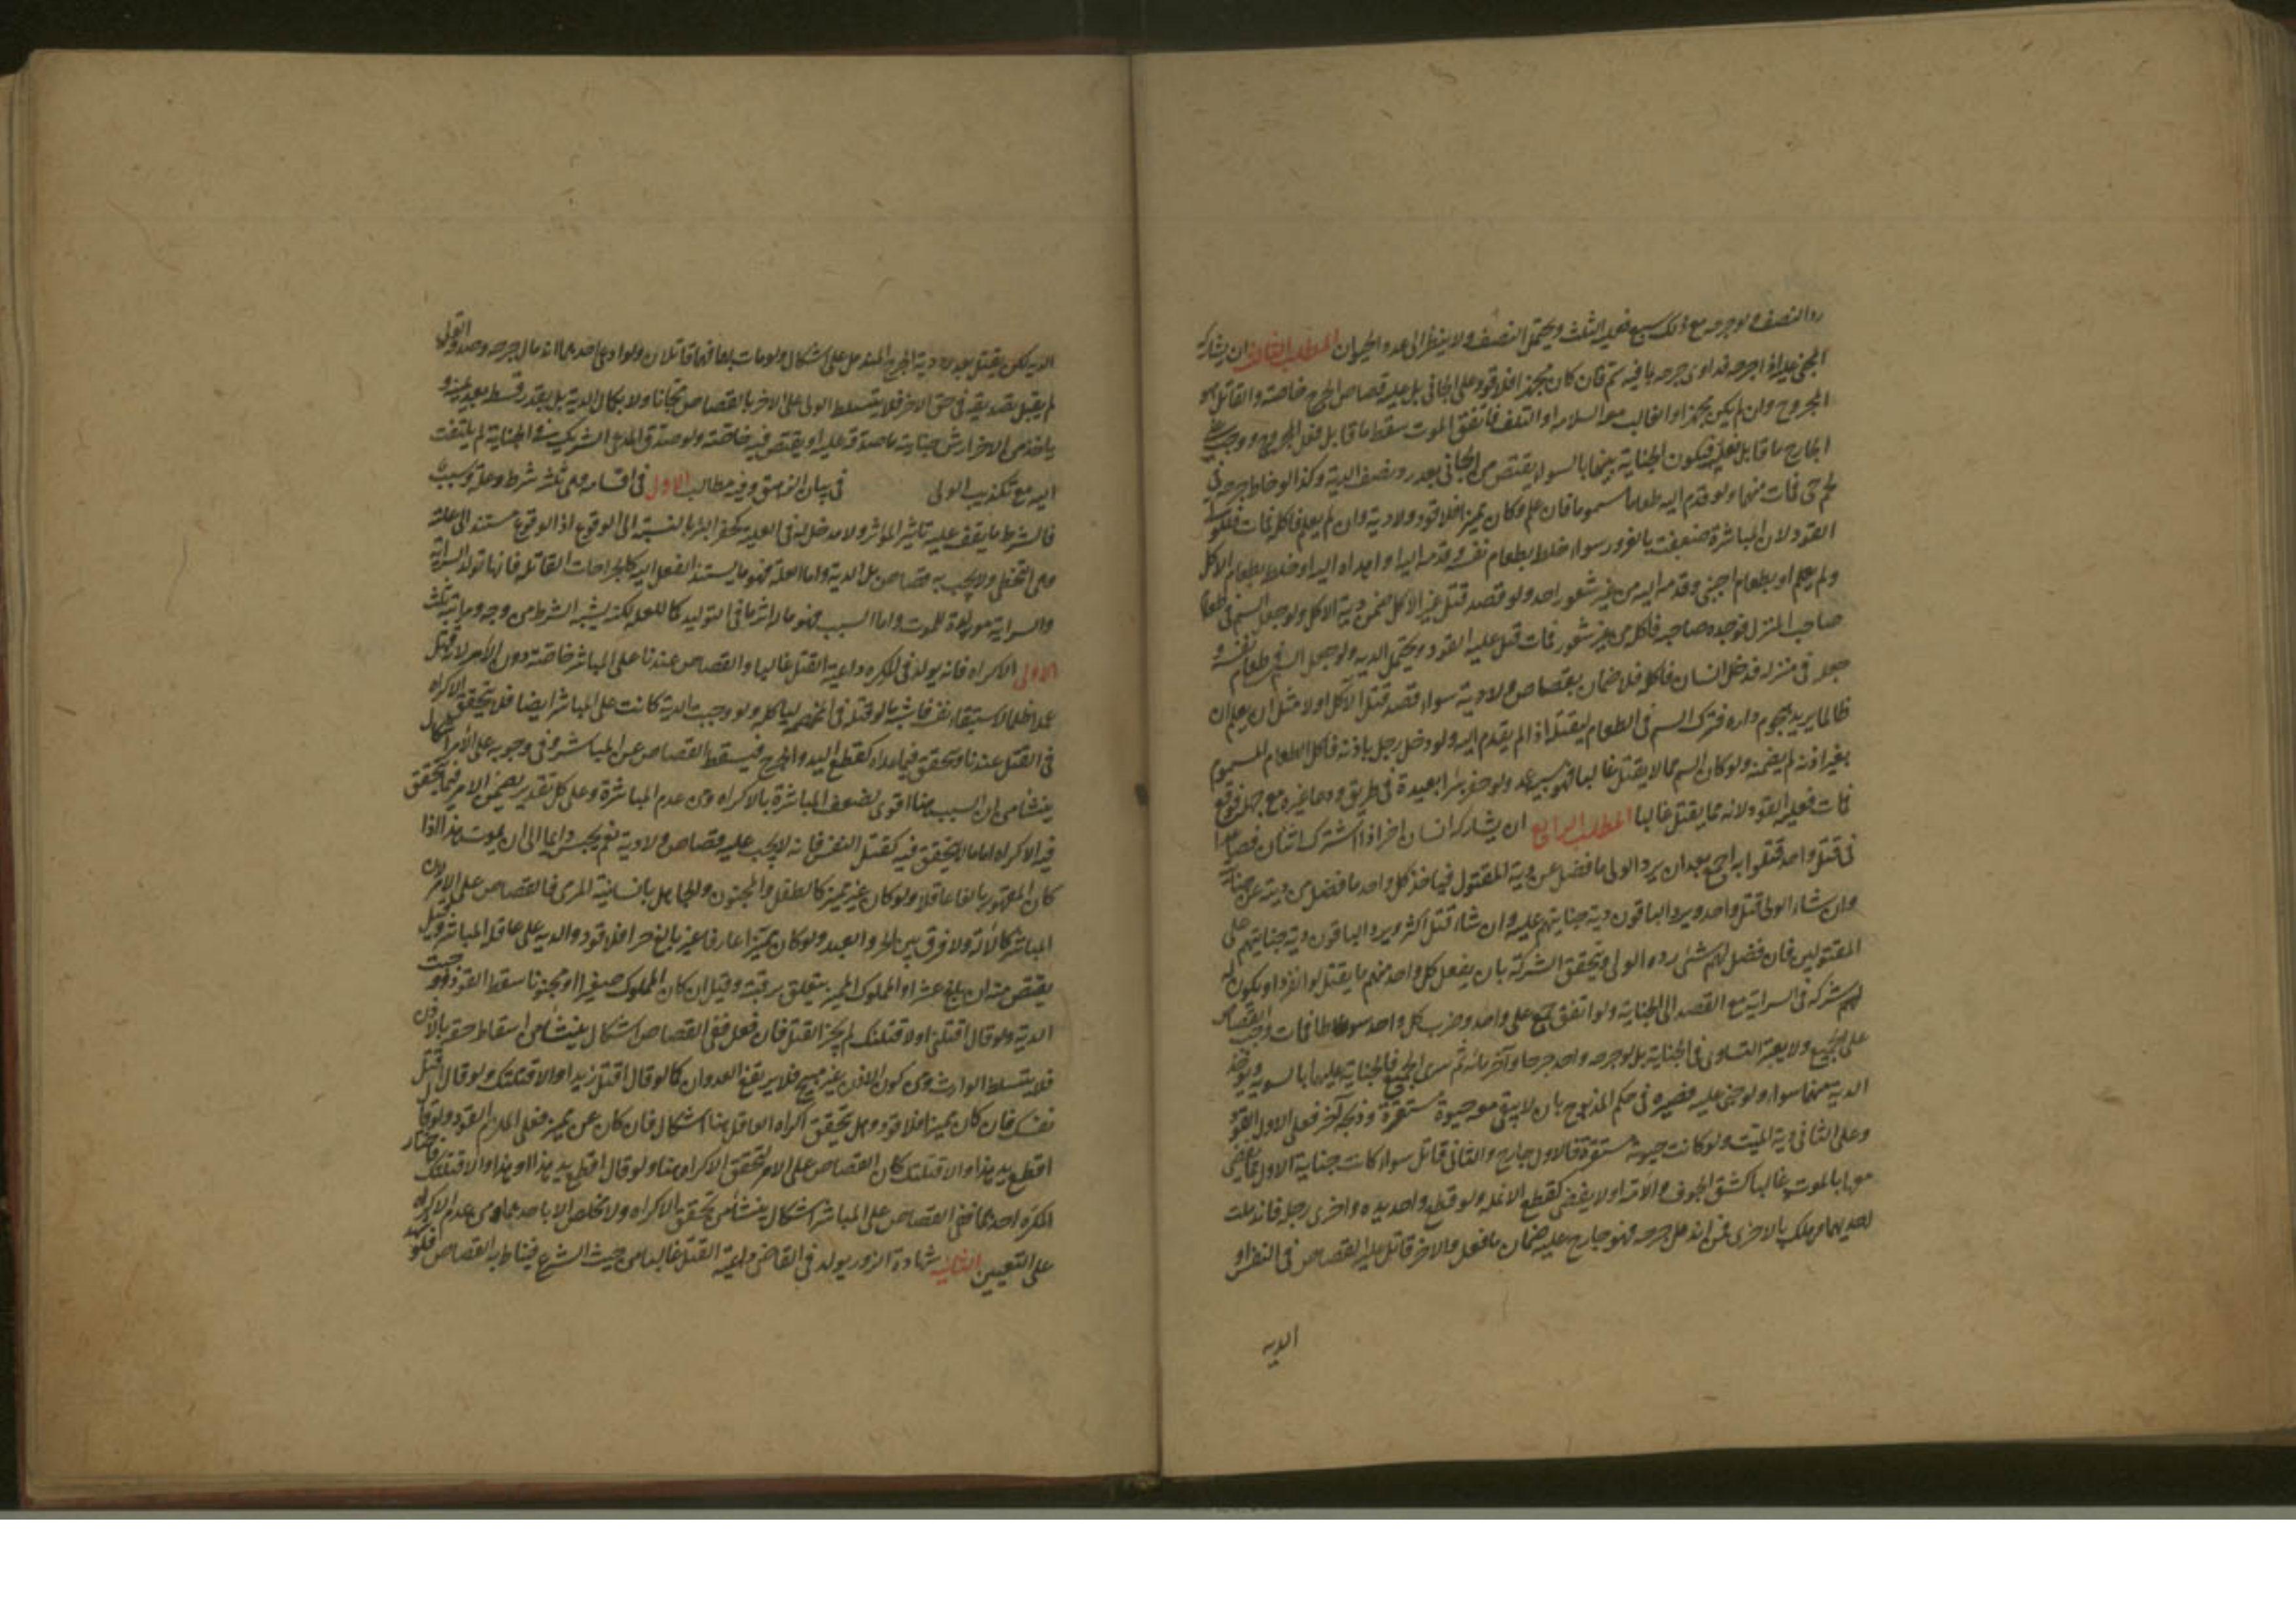 رد النصف ولو جرحه مع ذلك سبع فعليه الثلث ويحتمل النصف ولا ينظر الى عدد الحيوان المطلب الثالث ان يشاركه
المجني عليه اذا جرحه فداوى جرحه بما فيه سم فان كان مجهزا فلا قود على الجاني بل عليه قصاص الجرح خاصة والقاتل هو
المجروح وان لم يكن مجهزا والغالب معه السلامة او التلف فاتفق الموت سقط ما قابل فعل المجروح ووجب على
الجارح ما قابل فعله فيكون الجناية بينهما بالسواء يقتص من الجاني بعد رد نصف الدية وكذا لو خاط جرحه في
لحم حي فمات منهما ولو قدم اليه طعاما مسموما فان علم وكان مميزا فلا قود ولا دية وان لم يعلم فاكل فمات فللولي
القود لان المباشرة ضعفت بالغرور سواء خلطه بطعام نفسه وقدمه اليه او اهداه اليه او خلطه بطعام الاكل
ولم يعلم او بطعام اجنبي وقدمه اليه من غير شعور احد ولو قصد قتل غير الآكل ضمن دية الآكل ولو جعل السم في طعام
صاحب المنزل فوجده صاحبه فاكله من غير شعور فمات قيل عليه القود ويحتمل الدية ولو جعل السم في طعام نفسه و
جعله في منزله فدخل انسان فاكله فلا ضمان بقصاص ولا دية سواء قصد قتل الآكل او لا مثل ان يعلم ان
ظالما يريد هجوم داره فترك السم في الطعام ليقتله اذا لم يقدم اليه ولو دخل رجل باذنه فاكل الطعام المسموم
بغير اذنه لم يضمنه ولو كان السم مما لا يقتل غالبا فهو شبيه عمد ولو حفر بئرا بعيدة في طريق ودعا غيره مع جهله فوقع
فمات فعليه القود لانه مما يقتل غالبا المطلب الرابع ان يشاركه انسان اخر اذا اشترك اثنان فصاعدا
في قتل واحد قتلوا به اجمع بعد ان يرد الولي ما فضل عن دية المقتول فياخذ كل واحد ما فضل من ديته عن جنايته
وان شاء الولي قتل واحد ويرد الباقون دية جنايتهم عليه وان شاء قتل اكثر ويرد الباقون دية جنايتهم على
المقتولين فان فضل لهم شئ رده الولي ويتحقق الشركة بان يفعل كل واحد منهم ما يقتل لو انفرد او يكون له
شركة في السراية مع القصد الى الجناية ولو اتفق جمع على واحد وضرب كل واحد سوطا فمات وجب القصاص
على الجميع ولا يعتبر التساوي في الجناية بل لو جرحه واحد جرحا وآخر مائة ثم سرى الجميع فالجناية عليهما بالسوية ويؤخذ
الدية منهما سواء ولو جنى عليه فصيره في حكم المذبوح بان لا يبقى معه حيوة مستقرة وذبحه آخر فعلى الاول القود
وعلى الثاني دية الميت ولو كانت حيوته مستقرة فالاول جارح والثاني قاتل سواء كانت جناية الاول مما يقضى
معها بالموت غالبا كشق الجوف والآمة او لا يقضى كقطع الانملة ولو قطع واحد يده واخر رجله فاندملت
احديهما وهلك بالاخرى فمن اندمل جرحه فهو جارح عليه ضمان ما فعل والاخر قاتل عليه القصاص في النفس او
الدية
الدية لكن يقتل بعد رد دية الجرح المندمل على اشكال ولو مات بهما فهما قاتلان ولو ادعى احدهما اندمال جرحه وصدقه الولي
لم يقبل تصديقه في حق الاخر فلا يتسلط الولي على الاخر بالقصاص مجانا ولا بكمال الدية بل بقدر قسطه بعد يمينه و
ياخذ من الاخر ارش جناية ما صدقه عليه او يقتص فيه خاصة ولو صدق المدعي الشريك في الجناية لم يلتفت
اليه مع تكذيب الولي في بيان المزهق وفيه مطالب الاول في اقسامه وهي ثلثة شرط وعلة وسبب
فالشرط ما يقف عليه تاثير المؤثر ولا مدخل له في العلية كحفر البئر بالنسبة الى الوقوع اذ الوقوع مستند الى علته
وهي التخطي ولا يجب به قصاص بل الدية واما العلة فهو ما يستند الفعل اليه كالجراحات القاتلة فانها تولد السراية
والسراية مولدة للموت واما السبب فهو ما له اثر ما في التوليد كالعلة لكنه يشبه الشرط من وجه ومراتبه ثلث
الاولى الاكراه فانه يولد في المكره داعية القتل غالبا والقصاص عندنا على المباشر خاصة دون الآمر لانه قتل
عمدا ظلما لاستبقاء نفسه فاشبه ما لو قتله في المخمصة لياكله ولو وجبت الدية كانت على المباشر ايضا فلا يتحقق الاكراه
في القتل عندنا ويتحقق فيما عداه كقطع اليد والجرح فيسقط القصاص عن المباشر وفي وجوبه على الآمر اشكال
ينشا من ان السبب هنا اقوى لضعف المباشرة بالاكراه ومن عدم المباشرة وعلى كل تقدير يضمن الامر فيما يتحقق
فيه الاكراه اما ما لا يتحقق فيه كقتل النفس فانه لا يجب عليه قصاص ولا دية نعم يحبس دائما الى ان يموت هذا اذا
كان المقهور بالغا عاقلا ولو كان غير مميز كالطفل والمجنون والجاهل بانسانية المرمى فالقصاص على الامر لان
المباشر كالآلة ولا فرق بين الحر والعبد ولو كان مميزا عارفا غير بالغ حر فلا قود والدية على عاقلة المباشر وقيل
يقتص منه ان بلغ عشرا والمملوك المميز يتعلق برقبته وقيل ان كان المملوك صغيرا او مجنونا سقط القود ووجبت
الدية ولو قال اقتلني او لاقتلنك لم يجز القتل فان فعل ففي القصاص اشكال ينشا من اسقاط حقه بالاذن
فلا يتسلط الوارث ومن كون الاذن غير مبيح فلا يرتفع العدوان كما لو قال اقتل زيدا والا قتلتك ولو قال اقتل
نفسك فان كان مميزا فلا قود وهل يتحقق اكراه العاقل هنا اشكال فان كان غير مميز فعلى الملزم القود ولو قال
اقطع يد هذا والا قتلتك كان القصاص على الامر لتحقق الاكراه هنا ولو قال اقطع يد هذا او هذا والا قتلتك فاختار
المكره احدهما ففي القصاص على المباشر اشكال ينشا من تحقق الاكراه ولا تخلص الا باحدهما ومن عدم الاكراه
على التعيين الثانية شهادة الزور يولد في القاضي داعية القتل غالبا من حيث الشرع فيناط به القصاص فلو